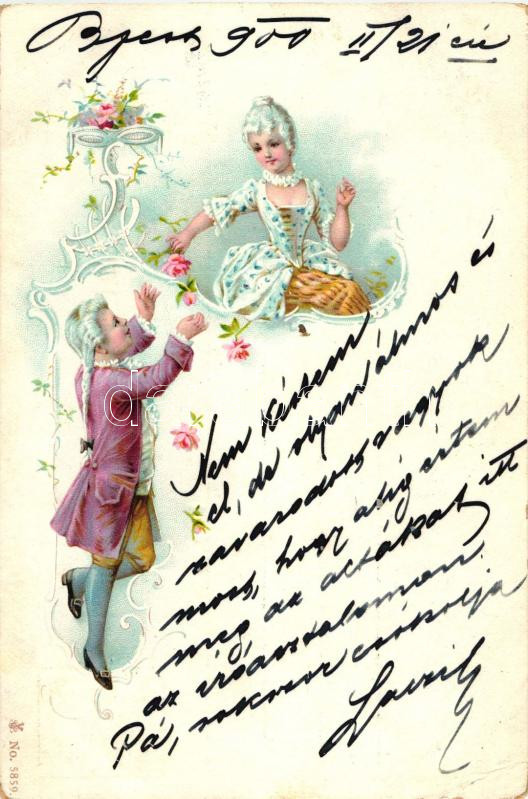 Bpest 900 II/21 én
Nem késtem
el, de olyan álmos és
zavarodott vagyok
most, hogy alig értem
meg az actákat itt
az íróasztalomon.
Pá, sokszor csókolja
No. 5859.